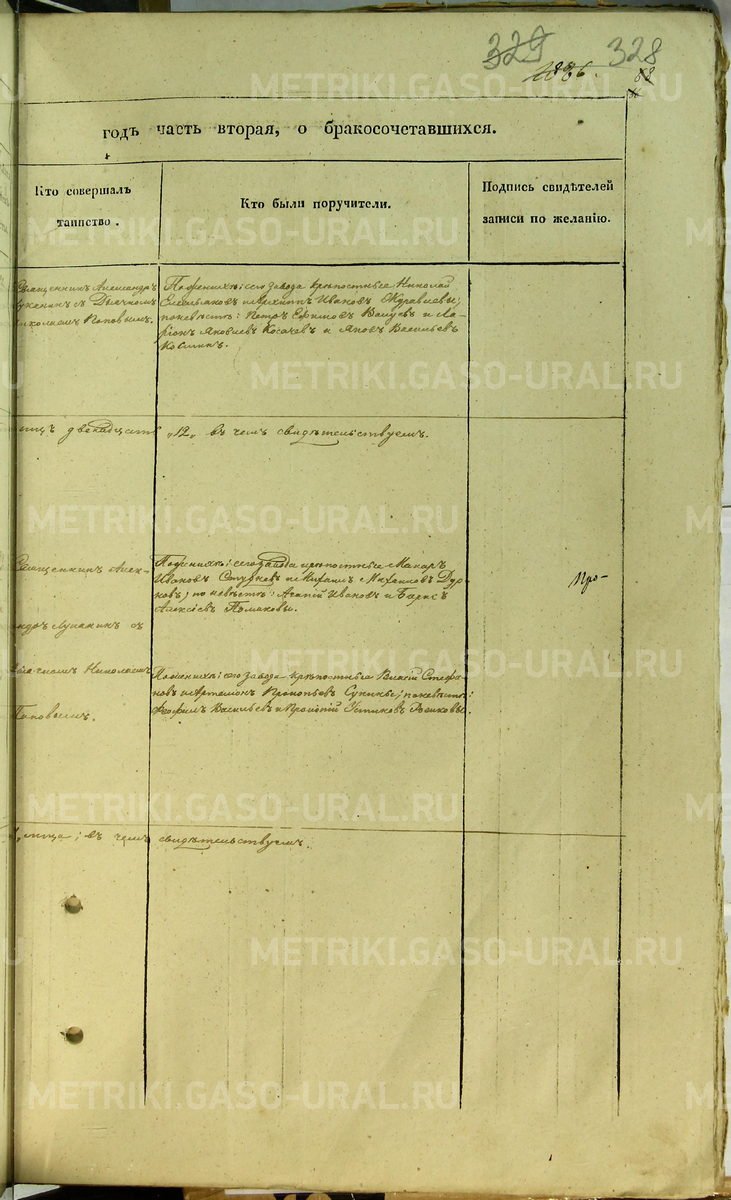 329 328
886. 88
годъ часть вторая, о бракосочетавшихся.
Кто совершалъ
таинство.
Кто были поручители.
Подпись свидѣтелей
записи по желанію.
Священникъ Александръ
съ Дьячкомъ
Николаемъ Поповымъ.
По женихѣ: сего завода крѣпостные Николай
Емельяновъ и Архипъ Ивановъ Журавлевы;
по невѣстѣ: Петръ Ефимовъ Валуевъ и Ла-
ріонъ Яковлевъ Косачевъ и Яковъ Васильевъ
двенадцать „12„ въ чемъ свидѣтельствуемъ.
Священникъ Алек-
андръ съ
Николаемъ
Поповымъ.
По женихѣ: сего завода крѣпостные Макаръ
Ивановъ и Михаилъ Михаиловъ Дур-
ковъ; по невѣстѣ: Агапій Ивановъ и Борисъ
Алексѣевъ
По женихѣ: сего завода крѣпостные Стефа-
новъ и Артамонъ Прокопьевъ Сукины; по невѣстѣ:
Ѳеофилъ Васильевъ и Прокопій
Про-
въ чемъ свидѣтельствуемъ.
METRIKI.GASO-URAL.RU